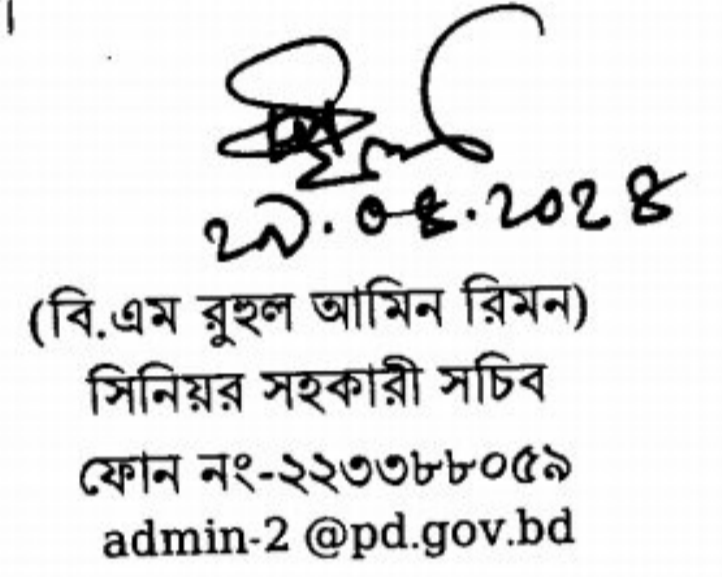 ২৯.০৪.২০২৪
(বি.এম রুহুল আমিন রিমন)
সিনিয়র সহকারী সচিব
ফোন নং-২২৩৩৮৮০৫৯
admin-2 @pd.gov.bd